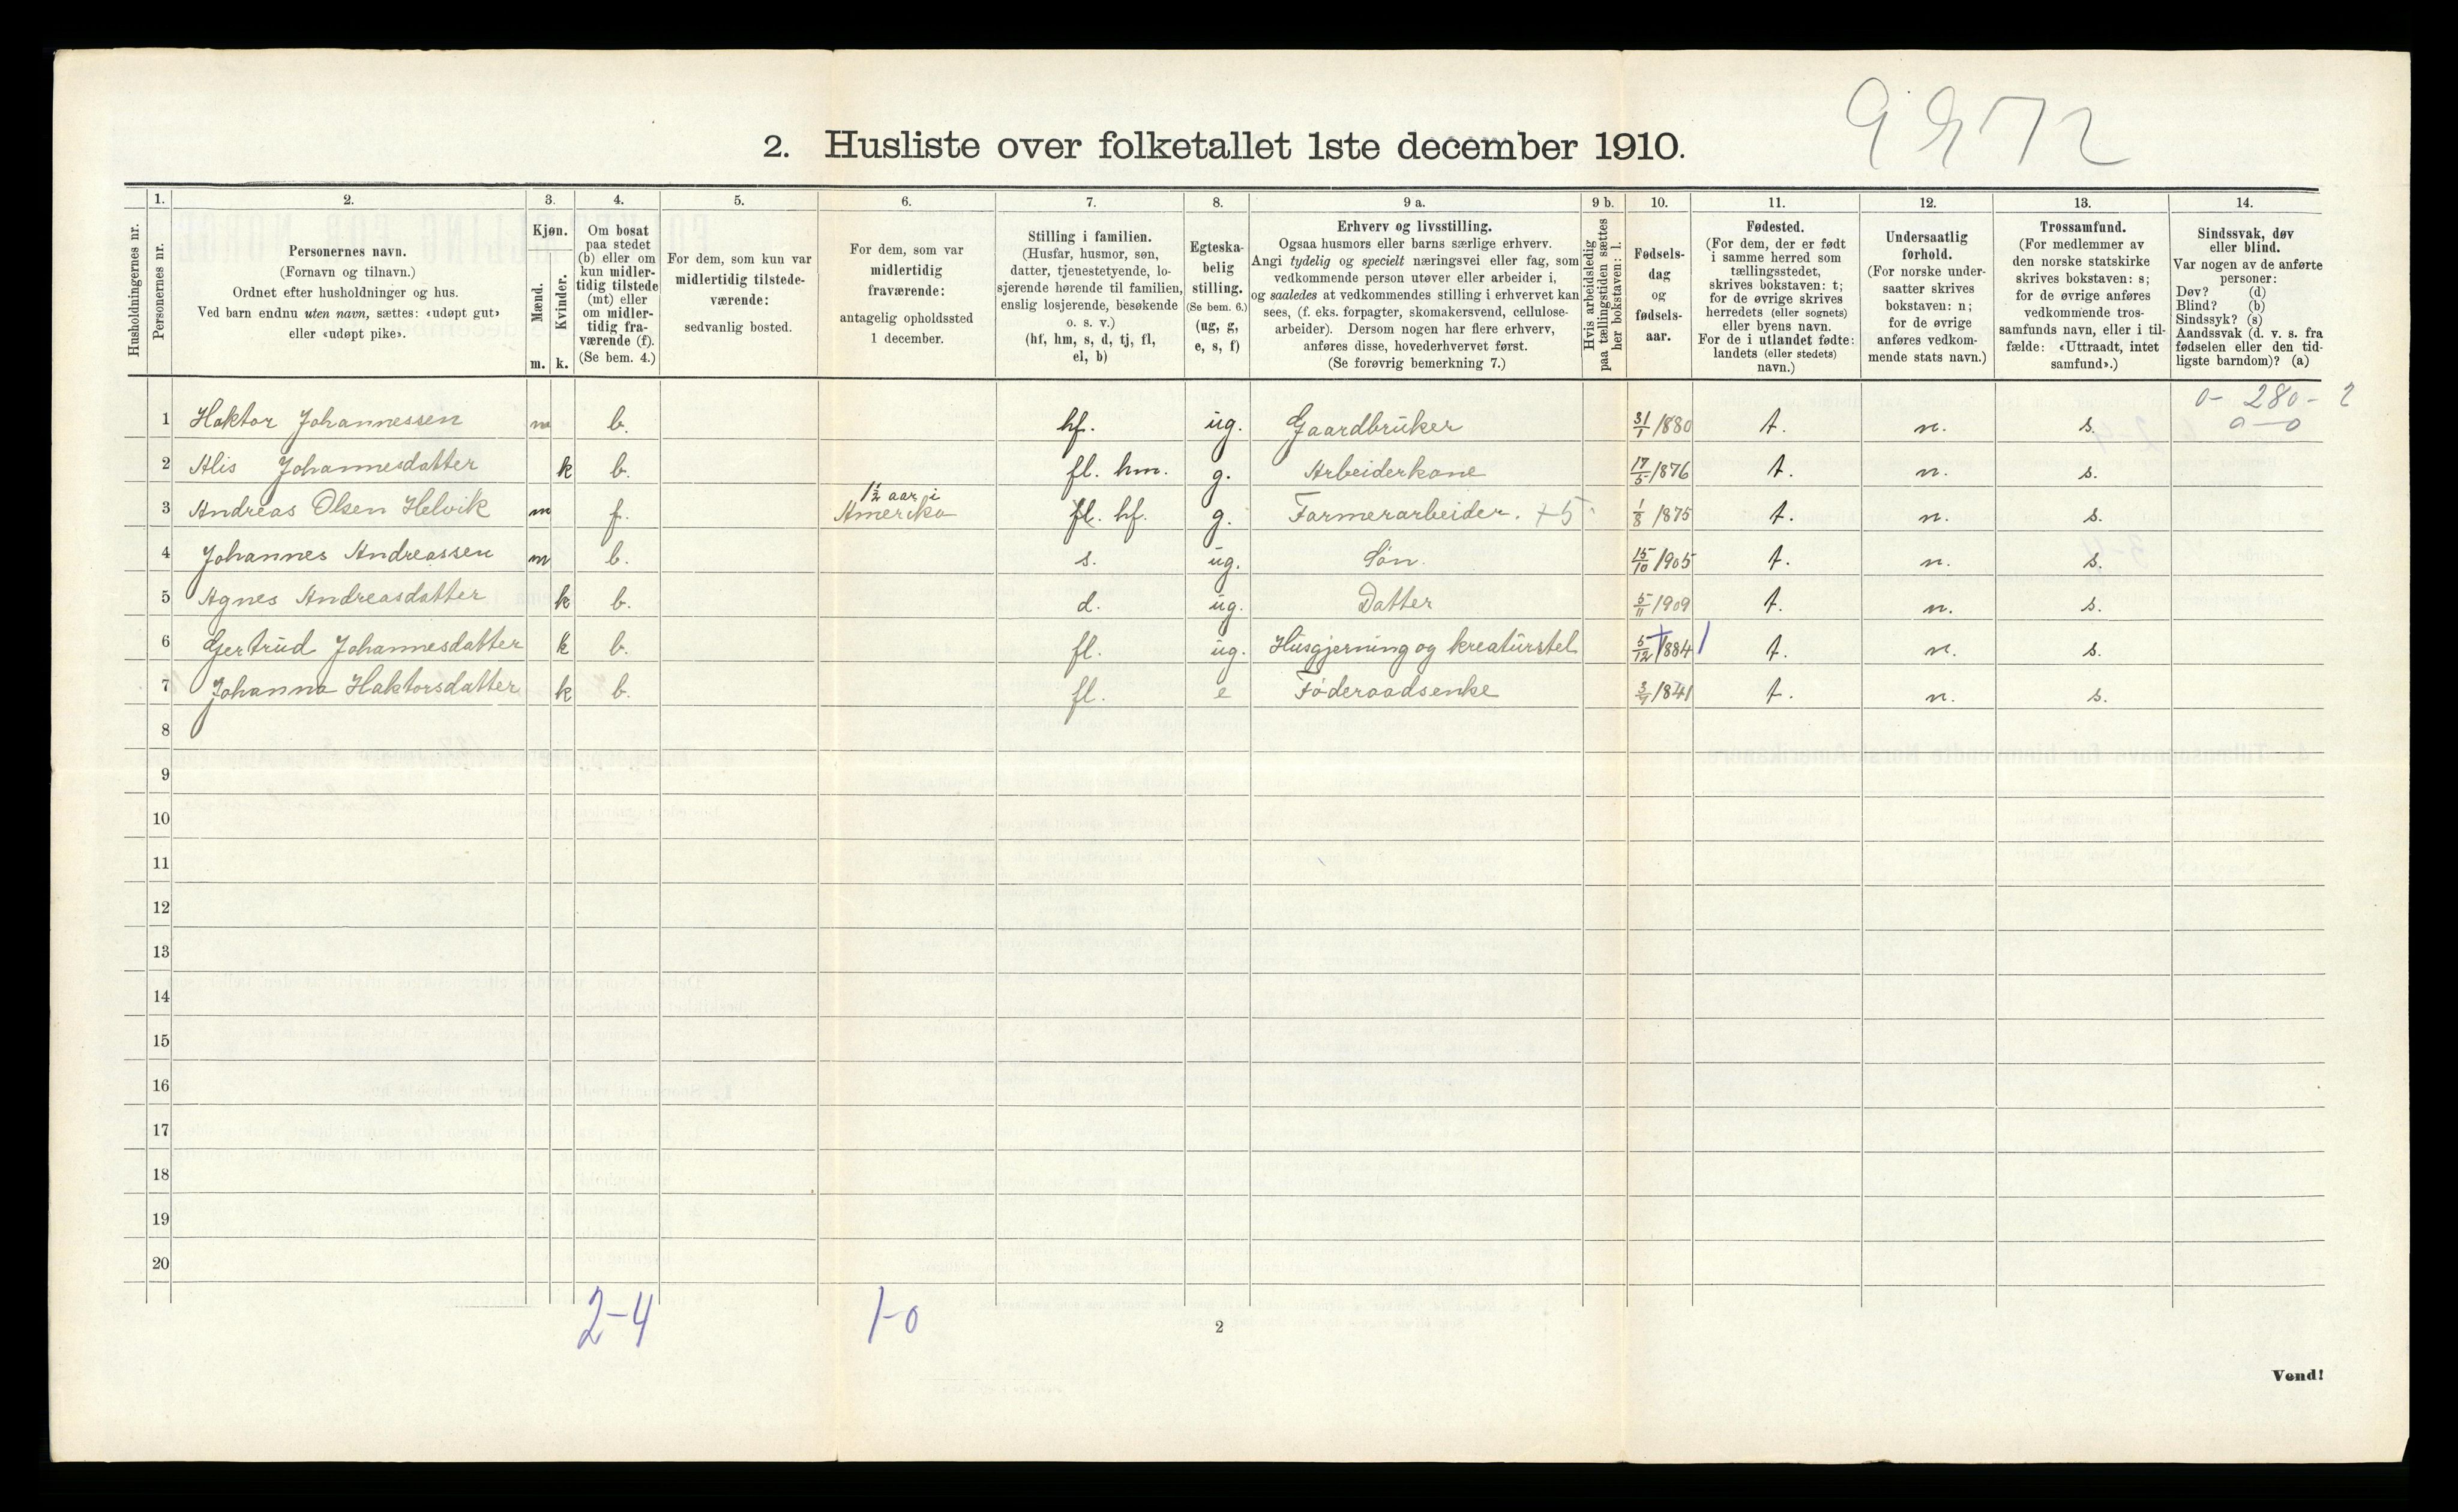 2. Husliste over folketallet 1ste december 1910.
1. 2. 3. 4. 5. 6. 7. 8. 9 a. 9 b. 10. 11. 12. 13. 14.
Husholdningernes nr.
Personernes nr.
Personernes navn.
(Fornavn og tilnavn.)
Ordnet efter husholdninger og hus.
Ved barn endnu uten navn, sættes: «udøpt gut»
eller «udøpt pike».
Kjøn.
Mænd.
Kvinder.
m. k.
Om bosat
paa stedet
(b) eller om
kun midler-
tidig tilstede
(mt) eller
om midler-
tidig fra-
værende (f).
(Se bem. 4.)
For dem, som kun var
midlertidig tilstede-
værende:
sedvanlig bosted.
For dem, som var
midlertidig
fraværende:
antagelig opholdssted
1 december.
Stilling i familien.
(Husfar, husmor, søn,
datter, tjenestetyende, lo-
sjerende hørende til familien,
enslig losjerende, besøkende
o. s. v.)
(hf, hm, s, d, tj, fl,
el, b)
Egteska-
belig
stilling.
(Se bem. 6.)
(ug, g,
e, s, f)
Erhverv og livsstilling.
Ogsaa husmors eller barns særlige erhverv.
Angi tydelig og specielt næringsvei eller fag, som
vedkommende person utøver eller arbeider i,
og saaledes at vedkommendes stilling i erhvervet kan
sees, (f. eks. forpagter, skomakersvend, cellulose-
arbeider). Dersom nogen har flere erhverv,
anføres disse, hovederhvervet først.
(Se forøvrig bemerkning 7.)
Hvis arbeidsledig
paa tællingstiden sættes
her bokstaven: l.
Fødsels-
dag
og
fødsels-
aar.
Fødested.
(For dem, der er født
i samme herred som
tællingsstedet,
skrives bokstaven: t;
for de øvrige skrives
herredets (eller sognets)
eller byens navn.
For de i utlandet fødte:
landets (eller stedets)
navn.)
Undersaatlig
forhold.
(For norske under-
saatter skrives
bokstaven: n;
for de øvrige
anføres vedkom-
mende stats navn.)
Trossamfund.
(For medlemmer av
den norske statskirke
skrives bokstaven: s;
for de øvrige anføres
vedkommende tros-
samfunds navn, eller i til-
fælde: «Uttraadt, intet
samfund».)
Sindssvak, døv
eller blind.
Var nogen av de anførte
personer:
Døv? (d)
Blind? (b)
Sindssyk? (s)
Aandssvak (d. v. s. fra
fødselen eller den tid-
ligste barndom)? (a)
0- 280- 2
0-0
1 Haktor Johannessen m b. hf. ug. Gaardbruker 31/1 1880 t. n. s.
2 Alis Johannesdatter k b. fl. hm. g. Arbeiderkone 17/5 1876 t. n. s.
1½ aar i
3 Andreas Olsen Helvik m f. Amerika fl. hf. g. Farmerarbeider. +5 1/8 1875 t. n. s.
4 Johannes Andreassen m b. s. ug. Søn. 15/10 1905 t. n. s.
5 Agnes Andreasdatter k b. d. ug. Datter 5/11 1909 t. n. s.
6 Gjertrud Johannesdatter k b. fl. ug. Husgjerning og kreaturstel 5/12 1884 t. n. s.
7 Johanna Haktorsdatter k b. fl. e Føderaadsenke 3/9 1841 t. n. s.
8
9
10
11
12
13
14
15
16
17
18
19
20
2-4 1-0
2
Vend!